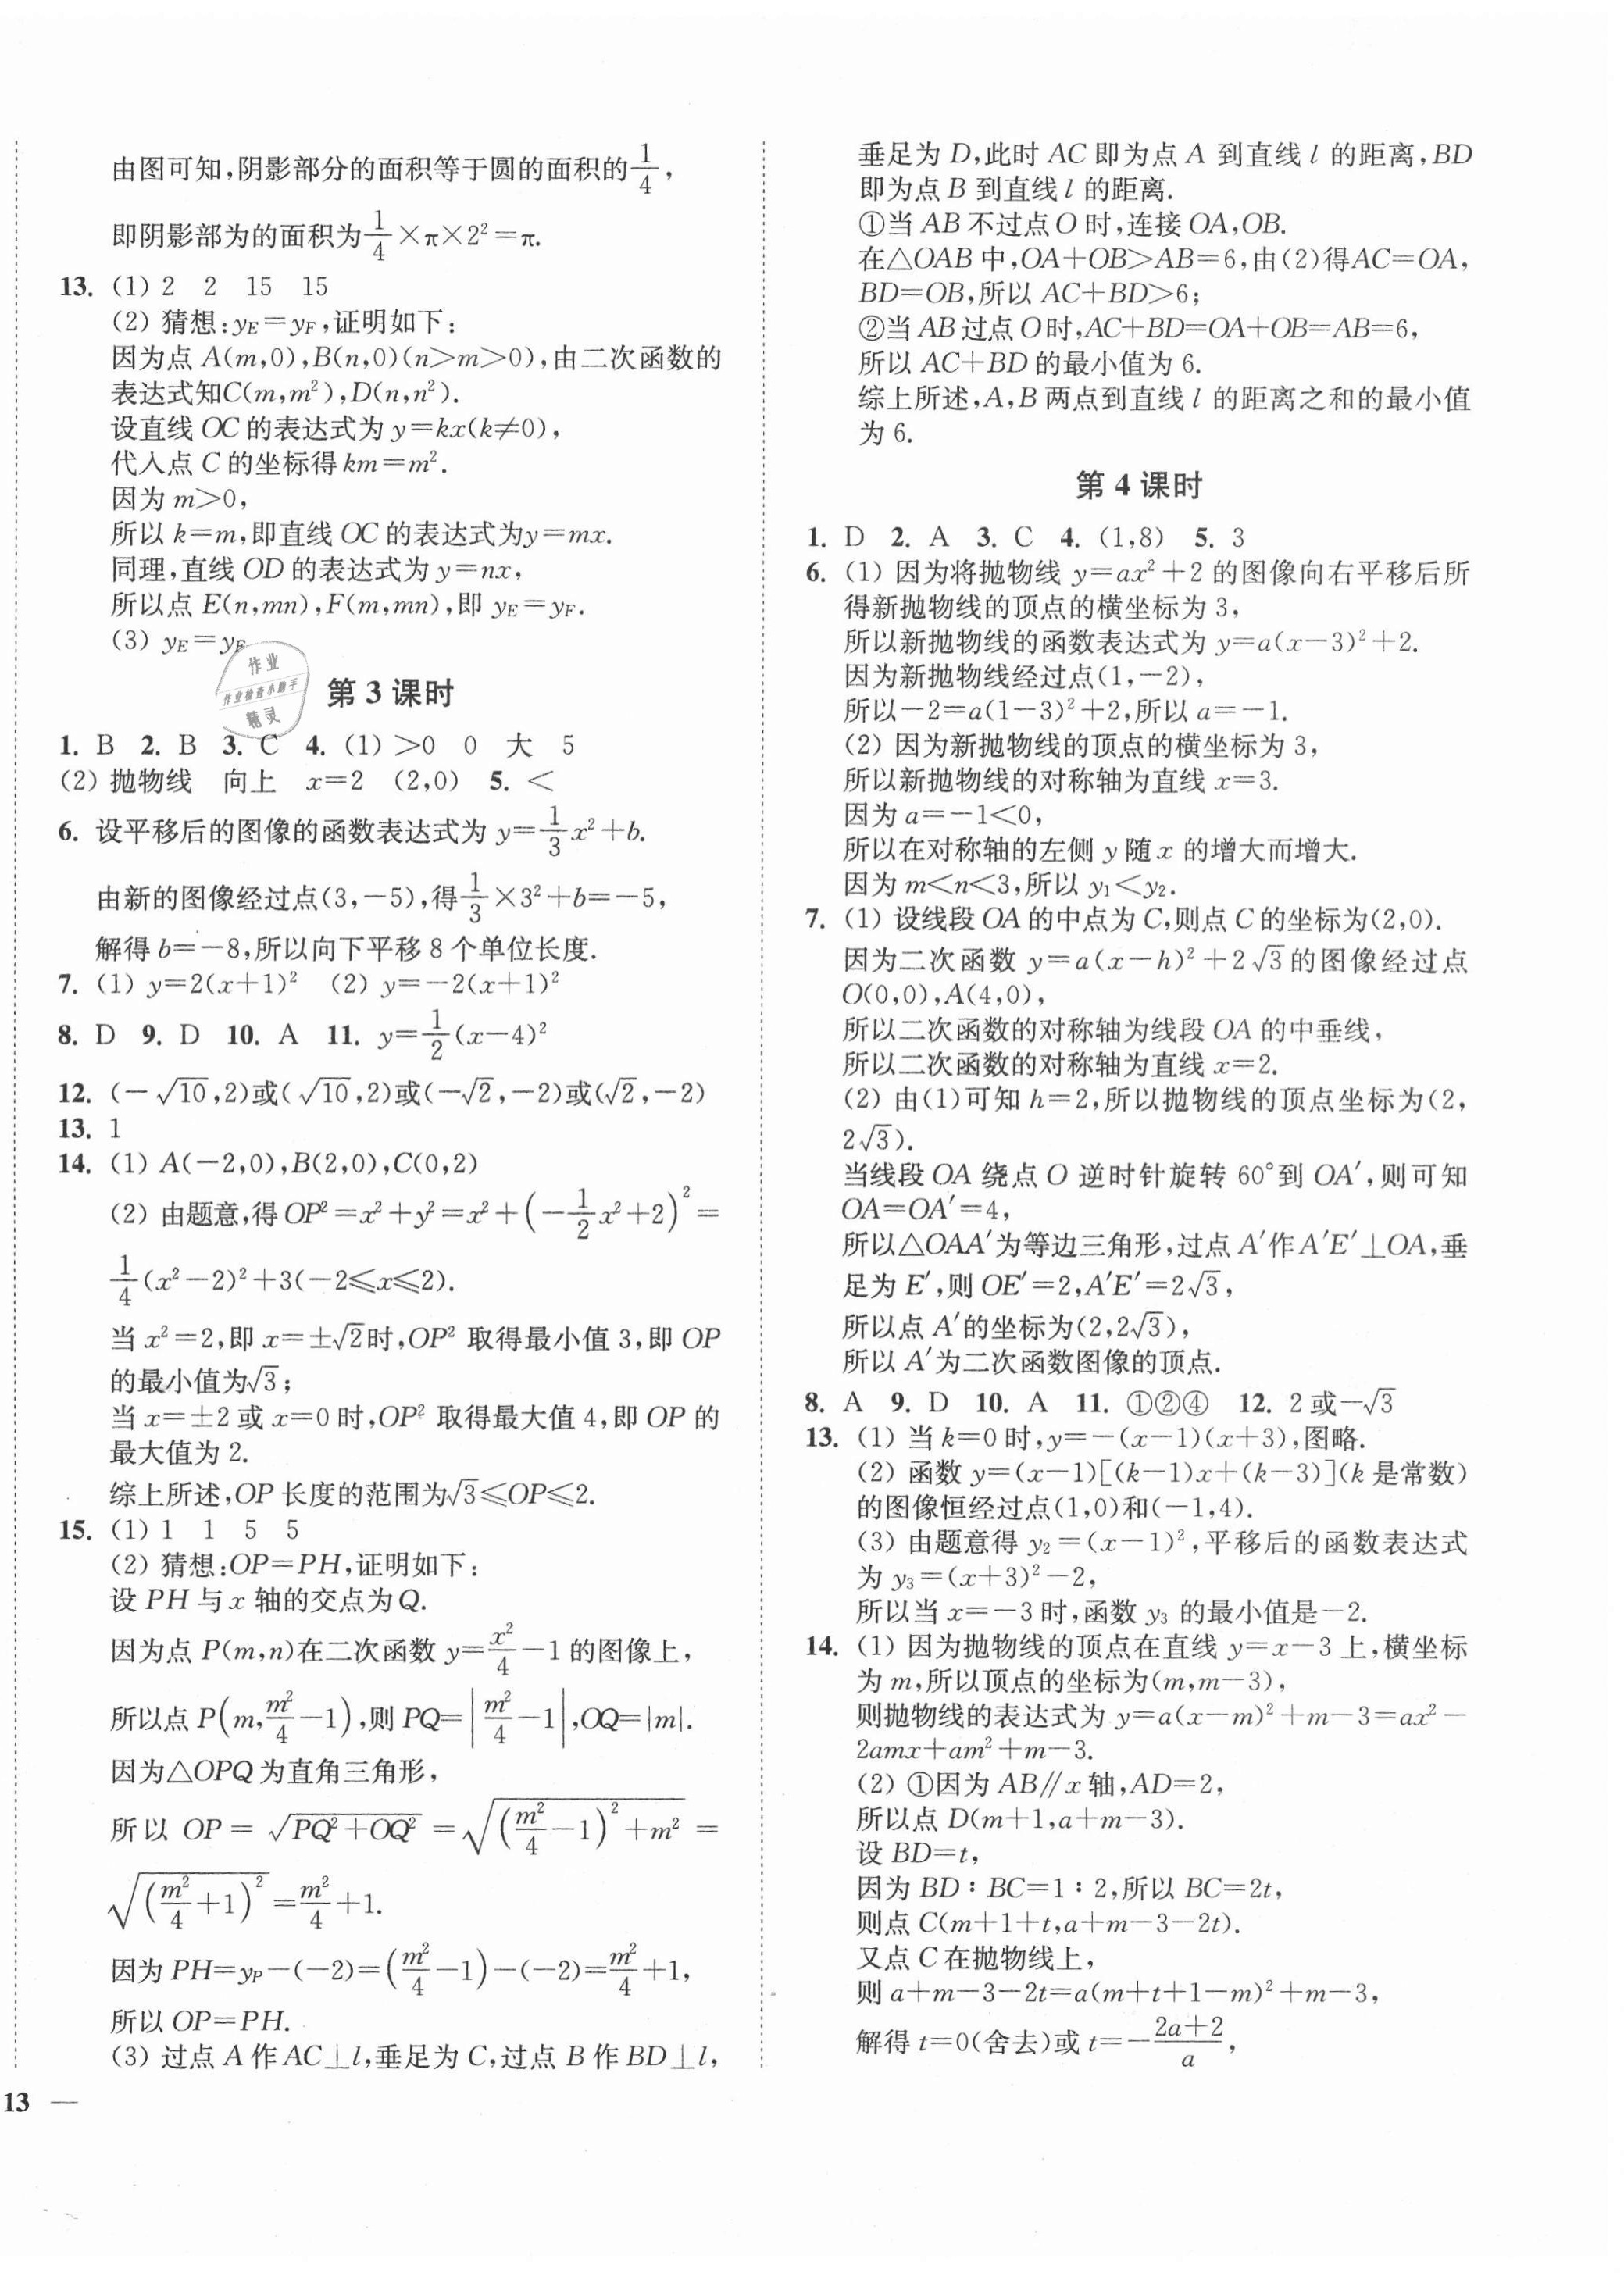 由图可知,阴影部分的面积等于圆的面积的1/4,
即阴影部为的面积为1/4×π×2²=π.
13. (1) 2 2 15 15
(2) 猜想:y_E=y_F,证明如下:
因为点 A(m,0),B(n,0)(n>m>0),由二次函数的
表达式知C(m,m²),D(n,n²).
设直线 OC 的表达式为 y=kx(k≠0),
代入点 C 的坐标得 km=m².
因为 m>0,
所以 k=m,即直线 OC 的表达式为y=mx.
同理,直线 OD 的表达式为 y=nx,
所以点 E(n,mn),F(m,mn),即 y_E=y_F.
(3) y_E=y_F
作业
作业检查小助手
精灵
第 3 课时
1. B 2. B 3. C 4. (1) >0 0 大 5
(2) 抛物线 向上 x=2 (2,0) 5. <
6. 设平移后的图像的函数表达式为 y=1/3x²+b.
由新的图像经过点(3,-5),得1/3×3²+b=-5,
解得 b=-8,所以向下平移 8 个单位长度.
7. (1) y=2(x+1)² (2) y=-2(x+1)²
8. D 9. D 10. A 11. y=1/2(x-4)²
12. (-√10,2)或(√10,2)或(-√2,-2)或(√2,-2)
13. 1
14. (1) A(-2,0),B(2,0),C(0,2)
(2) 由题意,得 OP²=x²+y²=x²+(-1/2x²+2)²=
1/4(x²-2)²+3(-2≤x≤2).
当 x²=2,即 x=±√2时,OP² 取得最小值 3,即 OP
的最小值为√3;
当 x=±2 或 x=0 时,OP² 取得最大值 4,即 OP 的
最大值为 2.
综上所述,OP 长度的范围为√3≤OP≤2.
15. (1) 1 1 5 5
(2) 猜想:OP=PH,证明如下:
设 PH 与 x 轴的交点为 Q.
因为点 P(m,n)在二次函数 y=x²/4-1 的图像上,
所以点 P(m,m²/4-1),则 PQ=|m²/4-1|,OQ=|m|.
因为△OPQ 为直角三角形,
所以 OP=√(PQ²+OQ²)=√((m²/4-1)²+m²)=
√((m²/4+1)²)=m²/4+1.
因为 PH=y_P-(-2)=(m²/4-1)-(-2)=m²/4+1,
所以 OP=PH.
(3) 过点 A 作 AC⊥l,垂足为 C,过点 B 作 BD⊥l,
13 —
垂足为 D,此时 AC 即为点 A 到直线 l 的距离,BD
即为点 B 到直线 l 的距离.
①当 AB 不过点 O 时,连接 OA,OB.
在△OAB 中,OA+OB>AB=6,由(2)得AC=OA,
BD=OB,所以 AC+BD>6;
②当 AB 过点 O 时,AC+BD=OA+OB=AB=6,
所以 AC+BD 的最小值为 6.
综上所述,A,B 两点到直线 l 的距离之和的最小值
为 6.
第 4 课时
1. D 2. A 3. C 4. (1,8) 5. 3
6. (1) 因为将抛物线 y=ax²+2 的图像向右平移后所
得新抛物线的顶点的横坐标为 3,
所以新抛物线的函数表达式为 y=a(x-3)²+2.
因为新抛物线经过点(1,-2),
所以-2=a(1-3)²+2,所以 a=-1.
(2) 因为新抛物线的顶点的横坐标为 3,
所以新抛物线的对称轴为直线 x=3.
因为 a=-1<0,
所以在对称轴的左侧 y 随 x 的增大而增大.
因为 m<n<3,所以 y₁<y₂.
7. (1) 设线段 OA 的中点为 C,则点 C 的坐标为(2,0).
因为二次函数 y=a(x-h)²+2√3的图像经过点
O(0,0),A(4,0),
所以二次函数的对称轴为线段 OA 的中垂线,
所以二次函数的对称轴为直线 x=2.
(2) 由(1)可知 h=2,所以抛物线的顶点坐标为(2,
2√3).
当线段 OA 绕点 O 逆时针旋转 60°到 OA′,则可知
OA=OA′=4,
所以△OAA′为等边三角形,过点 A′作 A′E′⊥OA,垂
足为 E′,则 OE′=2,A′E′=2√3,
所以点 A′的坐标为(2,2√3),
所以 A′为二次函数图像的顶点.
8. A 9. D 10. A 11. ①②④ 12. 2 或-√3
13. (1) 当 k=0 时,y=-(x-1)(x+3),图略.
(2) 函数 y=(x-1)[(k-1)x+(k-3)](k 是常数)
的图像恒经过点(1,0)和(-1,4).
(3) 由题意得 y₂=(x-1)²,平移后的函数表达式
为 y₃=(x+3)²-2,
所以当 x=-3 时,函数 y₃ 的最小值是-2.
14. (1) 因为抛物线的顶点在直线 y=x-3 上,横坐标
为 m,所以顶点的坐标为(m,m-3),
则抛物线的表达式为 y=a(x-m)²+m-3=ax²-
2amx+am²+m-3.
(2) ①因为 AB∥x 轴,AD=2,
所以点 D(m+1,a+m-3).
设 BD=t,
因为 BD∶BC=1∶2,所以 BC=2t,
则点 C(m+1+t,a+m-3-2t).
又点 C 在抛物线上,
则 a+m-3-2t=a(m+t+1-m)²+m-3,
解得 t=0(舍去)或 t=-(2a+2)/a,